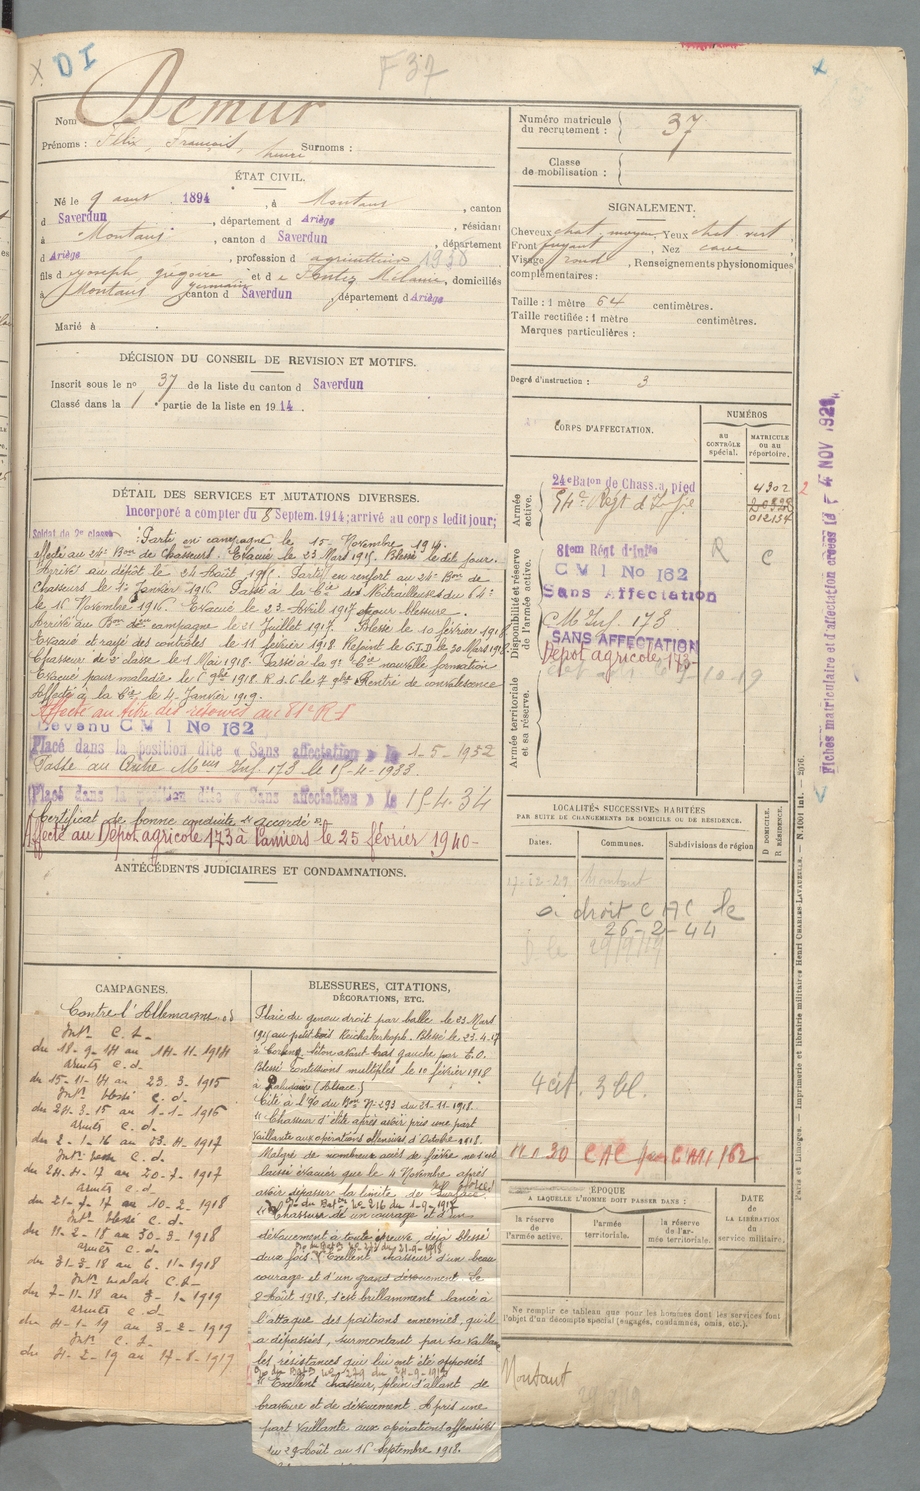 DI
F37
Nom Demur
Prénoms : Félix, François, henri Surnoms :
ÉTAT CIVIL.
Né le 9 aout 1894, à Montaut, canton
d Saverdun, département d Ariège, résidant
à Montaut, canton d Saverdun, département
d Ariège, profession d agriculteur
fils d Joseph grégoire et de Mélanie, domiciliés
germain
à Montaut canton d Saverdun, département d Ariège
Marié à
DÉCISION DU CONSEIL DE REVISION ET MOTIFS.
Inscrit sous le no 37 de la liste du canton d Saverdun
Classé dans la 1e partie de la liste en 1914.
DÉTAIL DES SERVICES ET MUTATIONS DIVERSES.
Incorporé a compter du 8 Septem. 1914; arrivé au corps ledit jour;
Soldat de 2e classe Parti en campagne le 15 Novembre 1914
affecté au 24e Bon de Chasseurs. Evacué le 23 Mars 1915. Blessé le dit jour.
Arrivé au dépôt le 24 Août 1915. Parti en renfort au 24e Bon de
Chasseurs le 1er Janvier 1916 Passé à la Cie de Mitrailleuses du 64e
le 16 Novembre 1916 Evacué le 23 Avril 1917 pour blessure.
Arrivé au Bon en campagne le 21 Juillet 1917. Blessé le 10 février 1918
Evacué et rayé des contrôles le 11 février 1918 Rejoint le C.I.D. le 30 Mars 1918
Chasseur de 2e classe le 1 Mai 1918. Passé à la 9e Cie nouvelle formation
Evacué pour maladie le 6 9bre 1918. R.d.C le 7 9bre Rentré de convalescence
Affecté à la Cie le 4 Janvier 1919.
Affecté au titre des réserves au 81e R.I
Devenu C M I No 162
Placé dans la position dite « Sans affectation » le 1-5-1932
Passé au Centre Meur Inf. 173 le 15-4-1933.
Placé dans la position dite « Sans affectation » le 15-4-34
Certificat de bonne conduite "accordé".
Affecté au Dépot agricole 173 à Pamiers le 25 février 1940-
ANTÉCÉDENTS JUDICIAIRES ET CONDAMNATIONS.
CAMPAGNES.
Contre l'Allemagne
Intr C. S.
du 18-9-14 au 14-11-1914
armées C.d.
du 15-11-14 au 23-3-1915
Intr blessé C.d.
du 24-3-15 au 1-1-1916
armées C.d.
du 2-1-16 au 23-4-1917
Intr C.d.
du 24-4-17 au 20-7-1917
armées C.d
du 21-7-17 au 10-2-1918
Intr blessé C.d.
du 11-2-18 au 30-3-1918
armées C.d
du 31-3-18 au 6-11-1918
Intr malade C.S-
du 7-11-18 au 3-1-1919
armées C.d-
du 4-1-19 au 3-2-1919
Intr C.S.
du 4-2-19 au 17-8-1919
BLESSURES, CITATIONS,
DÉCORATIONS, ETC.
Plaie du genou droit par balle le 23 Mars
1915 au petit Reichakerkopf. Blessé le 23.4.17
à séton avant bras gauche par E.O.
Blessé contusions multiples le 10 février 1918
à (Alsace)
Cité à l'O du Bon No 293 du 21-11-1918.
"Chasseur d'élite après avoir pris une part
vaillante aux opérations offensives d'Octobre 1918.
Malgré de nombreux accès de fièvre ne s'est
laissé évacuer que le 4 Novembre après
avoir dépassé la limite de ses forces
O du Baton No 216 du 1-9-1917
"Chasseur de un courage et d'un
dévouement à toute épreuve, déjà blessé
deux fois
"Excellent chasseur d'un beau
courage et d'un grand dévouement Le
8 Août 1918, s'est brillamment lancé à
l'attaque des positions ennemies, qu'il
a dépassées, surmontant par sa vaillance
les résistances qui lui ont été opposées
O du Baton No 279 du 24-9-1918
"Excellent chasseur, plein d'allant de
bravoure et de dévouement. A pris une
part vaillante aux opérations offensives
du 29 Août au 16 Septembre 1918.
Numéro matricule du recrutement : 37
Classe de mobilisation :
SIGNALEMENT.
Cheveux chat. moyen, Yeux chat vert
Front fuyant, Nez cave
Visage rond, Renseignements physionomiques
complémentaires :
Taille : 1 mètre 64 centimètres.
Taille rectifiée : 1 mètre centimètres.
Marques particulières :
Degré d'instruction : 3
CORPS D'AFFECTATION.
NUMÉROS
AU CONTRÔLE spécial.
MATRICULE OU AU répertoire.
Armée active.
24e Baton de Chass. a, pied
4302
94e Régt d'Infie
012154
Disponibilité et réserve de l'armée active.
81em Régt d'Infie
R C
C M I No 162
Sans Affectation
C M Inf. 173
SANS AFFECTATION
Dépot agricole 173
Armée territoriale et sa réserve.
LOCALITÉS SUCCESSIVES HABITÉES
PAR SUITE DE CHANGEMENTS DE DOMICILE OU DE RÉSIDENCE.
Dates. Communes. Subdivisions de région
D DOMICILE.
R RÉSIDENCE.
17-12-29 Montaut
a droit C A C le
26-2-44
4 cit. 3 bl.
CAC pour CMI 162
ÉPOQUE
A LAQUELLE L'HOMME DOIT PASSER DANS :
la réserve de l'armée active.
l'armée territoriale.
la réserve de l'armée territoriale.
DATE DE LA LIBÉRATION DU service militaire.
Ne remplir ce tableau que pour les hommes dont les services font
l'objet d'un décompte spécial (engagés, condamnés, omis, etc.).
Montaut
Fiches matriculaire et d'affectation créées le 4 NOV 1921
Paris et Limoges. — Imprimerie et librairie militaires Henri CHARLES-LAVAUZELLE. — N. 1001 Int. — 2976.